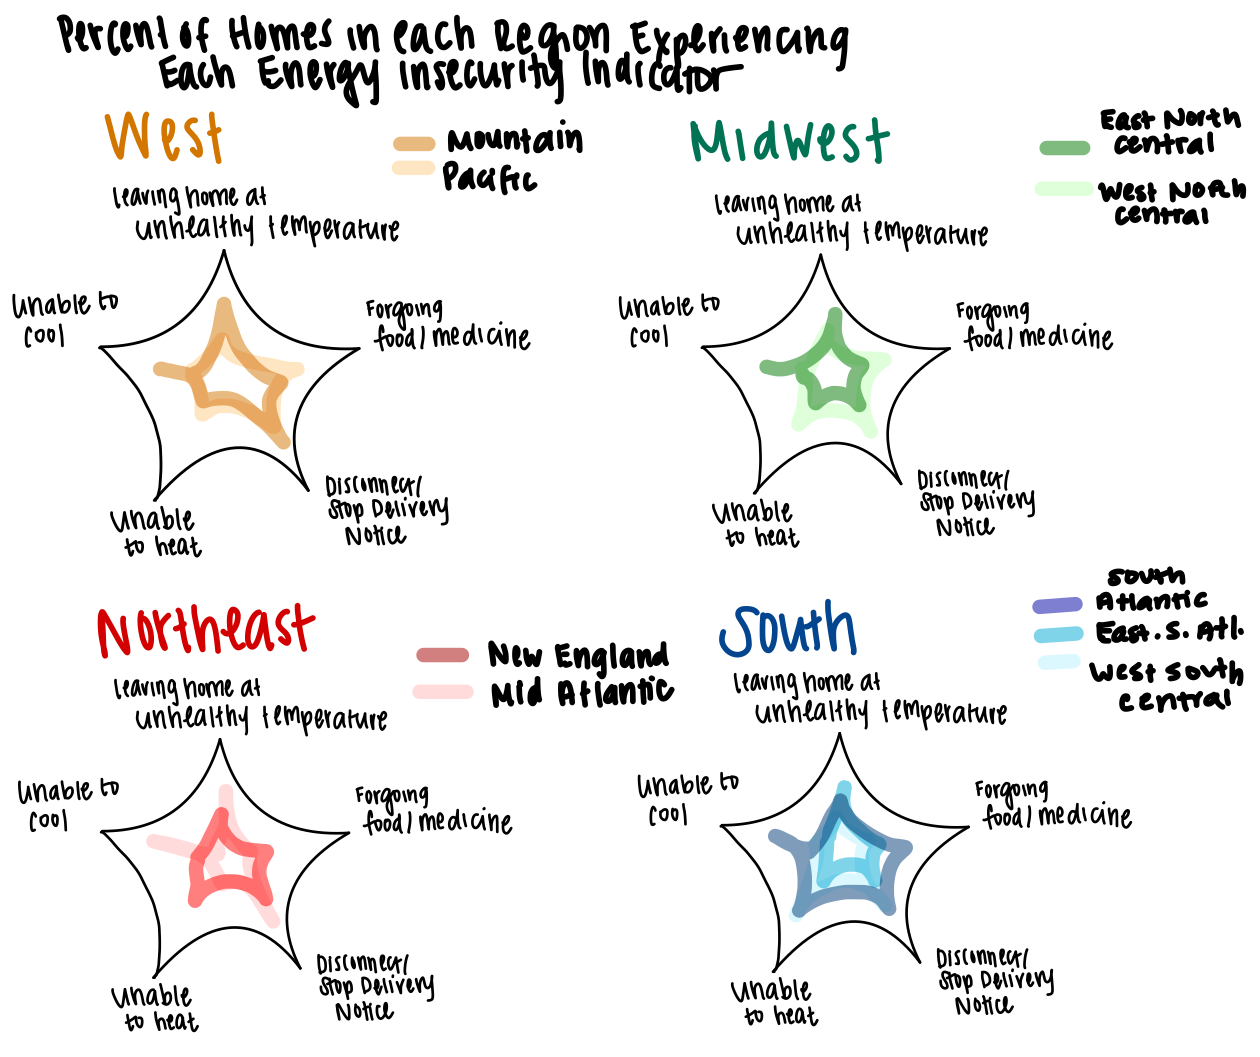 Percent of Homes in each Region Experiencing
Each Energy insecurity Indicator
West
Mountain
Pacific
leaving home at
unhealthy temperature
Unable to
cool
Forgoing
food/medicine
Disconnect/
Stop Delivery
Notice
Unable
to heat
Midwest
East North
central
West North
central
leaving home at
unhealthy temperature
Unable to
cool
Forgoing
food/medicine
Disconnect/
Stop Delivery
Notice
Unable
to heat
Northeast
New England
Mid Atlantic
leaving home at
unhealthy temperature
Unable to
cool
Forgoing
food/medicine
Disconnect/
Stop Delivery
Notice
Unable
to heat
South
South
Atlantic
East. S. Atl.
West South
central
leaving home at
unhealthy temperature
Unable to
cool
Forgoing
food/medicine
Disconnect/
Stop Delivery
Notice
Unable
to heat